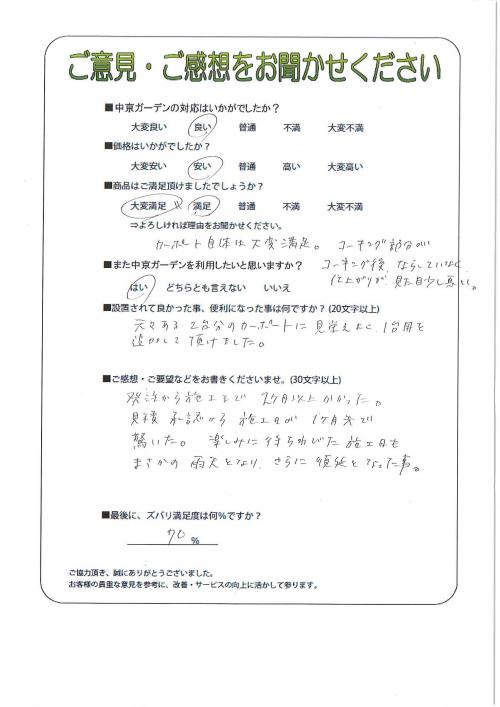 ご意見・ご感想をお聞かせください
■中京ガーデンの対応はいかがでしたか？
大変良い 良い 普通 不満 大変不満
■価格はいかがでしたか？
大変安い 安い 普通 高い 大変高い
■商品はご満足頂けましたでしょうか？
大変満足 満足 普通 不満 大変不満
⇒よろしければ理由をお聞かせください。
カーポート自体は大変満足。 コーキング部分が
コーキング後、ならしていなく
仕上がりが見た目少し悪い。
■また中京ガーデンを利用したいと思いますか？
はい どちらとも言えない いいえ
■設置されて良かった事、便利になった事は何ですか？(20文字以上)
元々ある2台分のカーポートに見栄えよく、1台用を
追加して頂けました。
■ご感想・ご要望などをお書きくださいませ。(30文字以上)
発注から施工まで 2ケ月以上かかった。
見積承認から施工日が1ケ月先で
驚いた。 楽しみに待ちわびた施工日も
まさかの雨天となり、さらに順延となった事。
■最後に、ズバリ満足度は何％ですか？
70 %
ご協力頂き、誠にありがとうございました。
お客様の貴重な意見を参考に、改善・サービスの向上に活かして参ります。